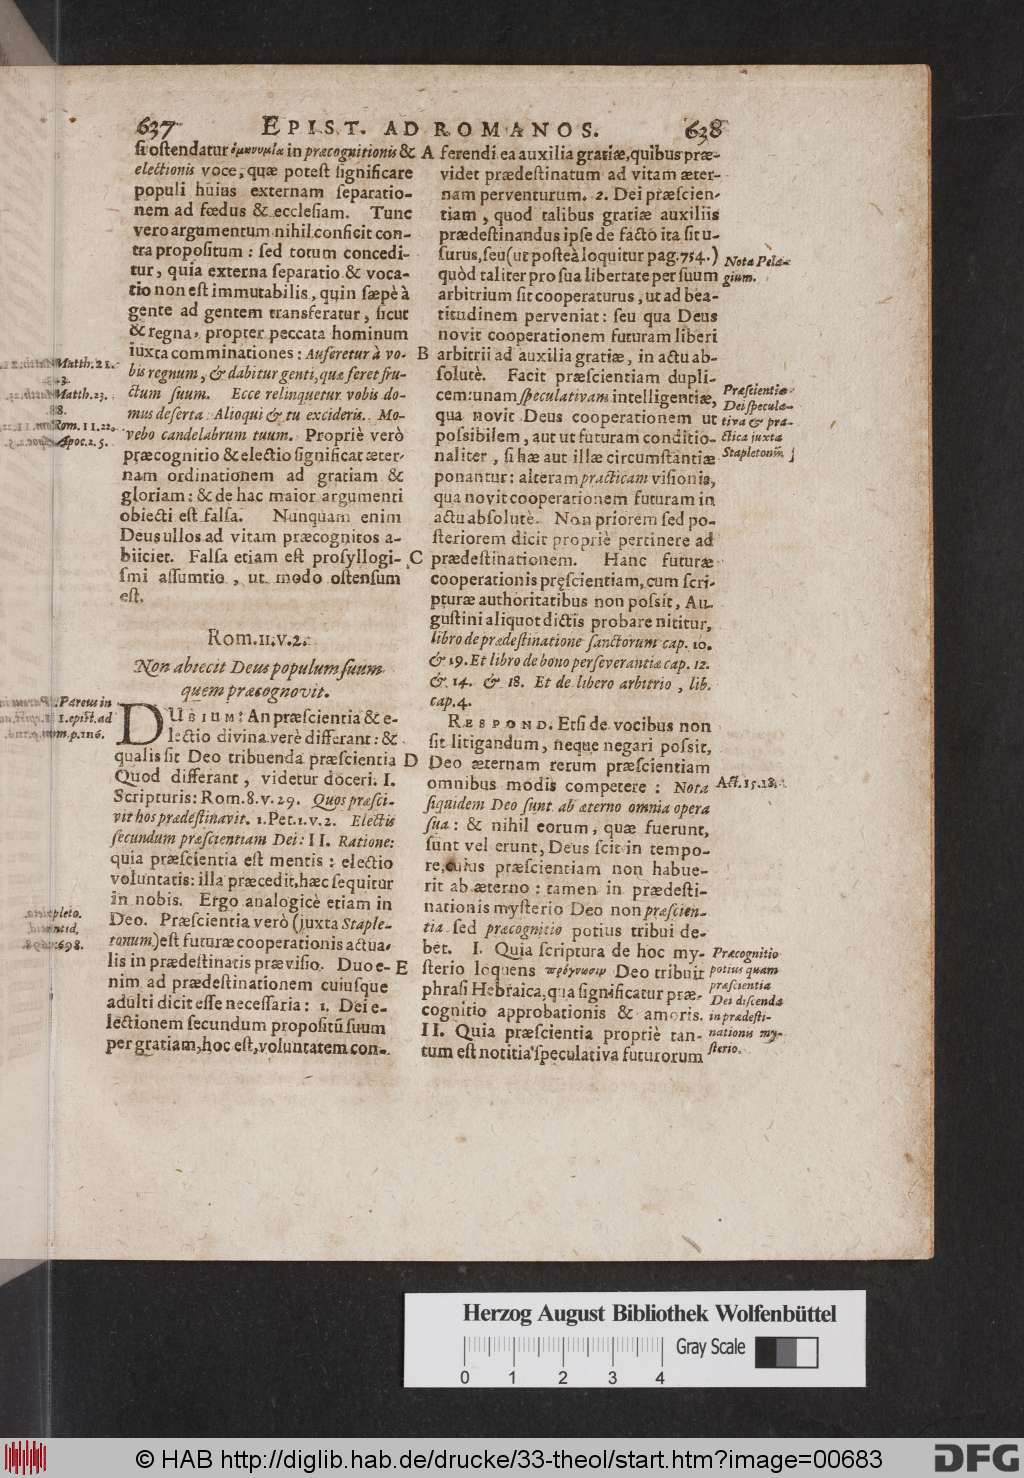 637 EPIST. AD ROMANOS. 638
si ostendatur ὁμωνυμία in præcognitionis &
electionis voce, quæ potest significare
populi huius externam separatio-
nem ad fœdus & ecclesiam. Tunc
vero argumentum nihil conficit con-
tra propositum : sed totum concedi-
tur, quia externa separatio & voca-
tio non est immutabilis, quin sæpè à
gente ad gentem transferatur, sicut
& regna, propter peccata hominum
iuxta comminationes : Auferetur à vo-
bis regnum, & dabitur genti, quæ feret fru-
ctum suum. Ecce relinquetur vobis do-
mus deserta. Alioqui & tu excideris. Mo-
vebo candelabrum tuum. Propriè verò
præcognitio & electio significat æter-
nam ordinationem ad gratiam &
gloriam : & de hac maior argumenti
obiecti est falsa. Nunquam enim
Deus ullos ad vitam præcognitos a-
biiciet. Falsa etiam est prosyllogi-
smi assumtio, ut modo ostensum
est.
Matth. 21.
43.
Matth. 23.
38.
Rom. 11. 22.
Apoc. 2. 5.
Rom. 11. v. 2.
Non abiecit Deus populum suum
quem præcognovit.
DUBIUM: An præscientia & e-
lectio divina verè differant : &
qualis sit Deo tribuenda præscientia
Quod differant, videtur doceri. I.
Scripturis: Rom. 8. v. 29. Quos præsci-
vit hos prædestinavit. 1. Pet. 1. v. 2. Electis
secundum præscientiam Dei: II. Ratione:
quia præscientia est mentis : electio
voluntatis: illa præcedit, hæc sequitur
in nobis. Ergo analogicè etiam in
Deo. Præscientia verò (juxta Staple-
tonum) est futuræ cooperationis actua-
lis in prædestinatis prævisio. Duo e-
nim ad prædestinationem cuiusque
adulti dicit esse necessaria : 1. Dei e-
lectionem secundum propositū suum
per gratiam, hoc est, voluntatem con-
Pareus in
1. epist. ad
Rom. p. 206.
698.
A
B
C
D
E
ferendi ea auxilia gratiæ, quibus præ-
videt prædestinatum ad vitam æter-
nam perventurum. 2. Dei præscien-
tiam, quod talibus gratiæ auxiliis
prædestinandus ipse de facto ita sit u-
surus, seu (ut posteà loquitur pag. 754.)
quòd taliter pro sua libertate per suum
arbitrium sit cooperaturus, ut ad bea-
titudinem perveniat : seu qua Deus
novit cooperationem futuram liberi
arbitrii ad auxilia gratiæ, in actu ab-
solutè. Facit præscientiam dupli-
cem: unam speculativam intelligentiæ,
qua novit Deus cooperationem ut
possibilem, aut ut futuram conditio-
naliter, si hæ aut illæ circumstantiæ
ponantur : alteram practicam visionis,
qua novit cooperationem futuram in
actu absolutè. Non priorem sed po-
steriorem dicit propriè pertinere ad
prædestinationem. Hanc futuræ
cooperationis pręscientiam, cum scri-
pturæ authoritatibus non possit, Au-
gustini aliquot dictis probare nititur,
libro de prædestinatione sanctorum cap. 10.
& 19. Et libro de bono perseverantiæ cap. 12.
& 14. & 18. Et de libero arbitrio, lib.
cap. 4.
RESPOND. Etsi de vocibus non
sit litigandum, neque negari possit,
Deo æternam rerum præscientiam
omnibus modis competere : Nota
siquidem Deo sunt ab æterno omnia opera
sua : & nihil eorum, quæ fuerunt,
sunt vel erunt, Deus scit in tempo-
re, cuius præscientiam non habue-
rit ab æterno : tamen in prædesti-
nationis mysterio Deo non præscien-
tia sed præcognitio potius tribui de-
bet. I. Quia scriptura de hoc my-
sterio loquens πρόγνωσιν Deo tribuit
phrasi Hebraica, qua significatur præ-
cognitio approbationis & amoris.
II. Quia præscientia propriè tan-
tum est notitia speculativa futurorum
Nota Pela-
gium.
Præscientia
Dei specula-
tiva & pra-
ctica juxta
Stapletonū.
Act. 15. 18.
Præcognitio
potius quam
præscientia
Dei discenda
in prædesti-
nationis my-
sterio.
Herzog August Bibliothek Wolfenbüttel
Gray Scale
0 1 2 3 4
© HAB http://diglib.hab.de/drucke/33-theol/start.htm?image=00683
DFG